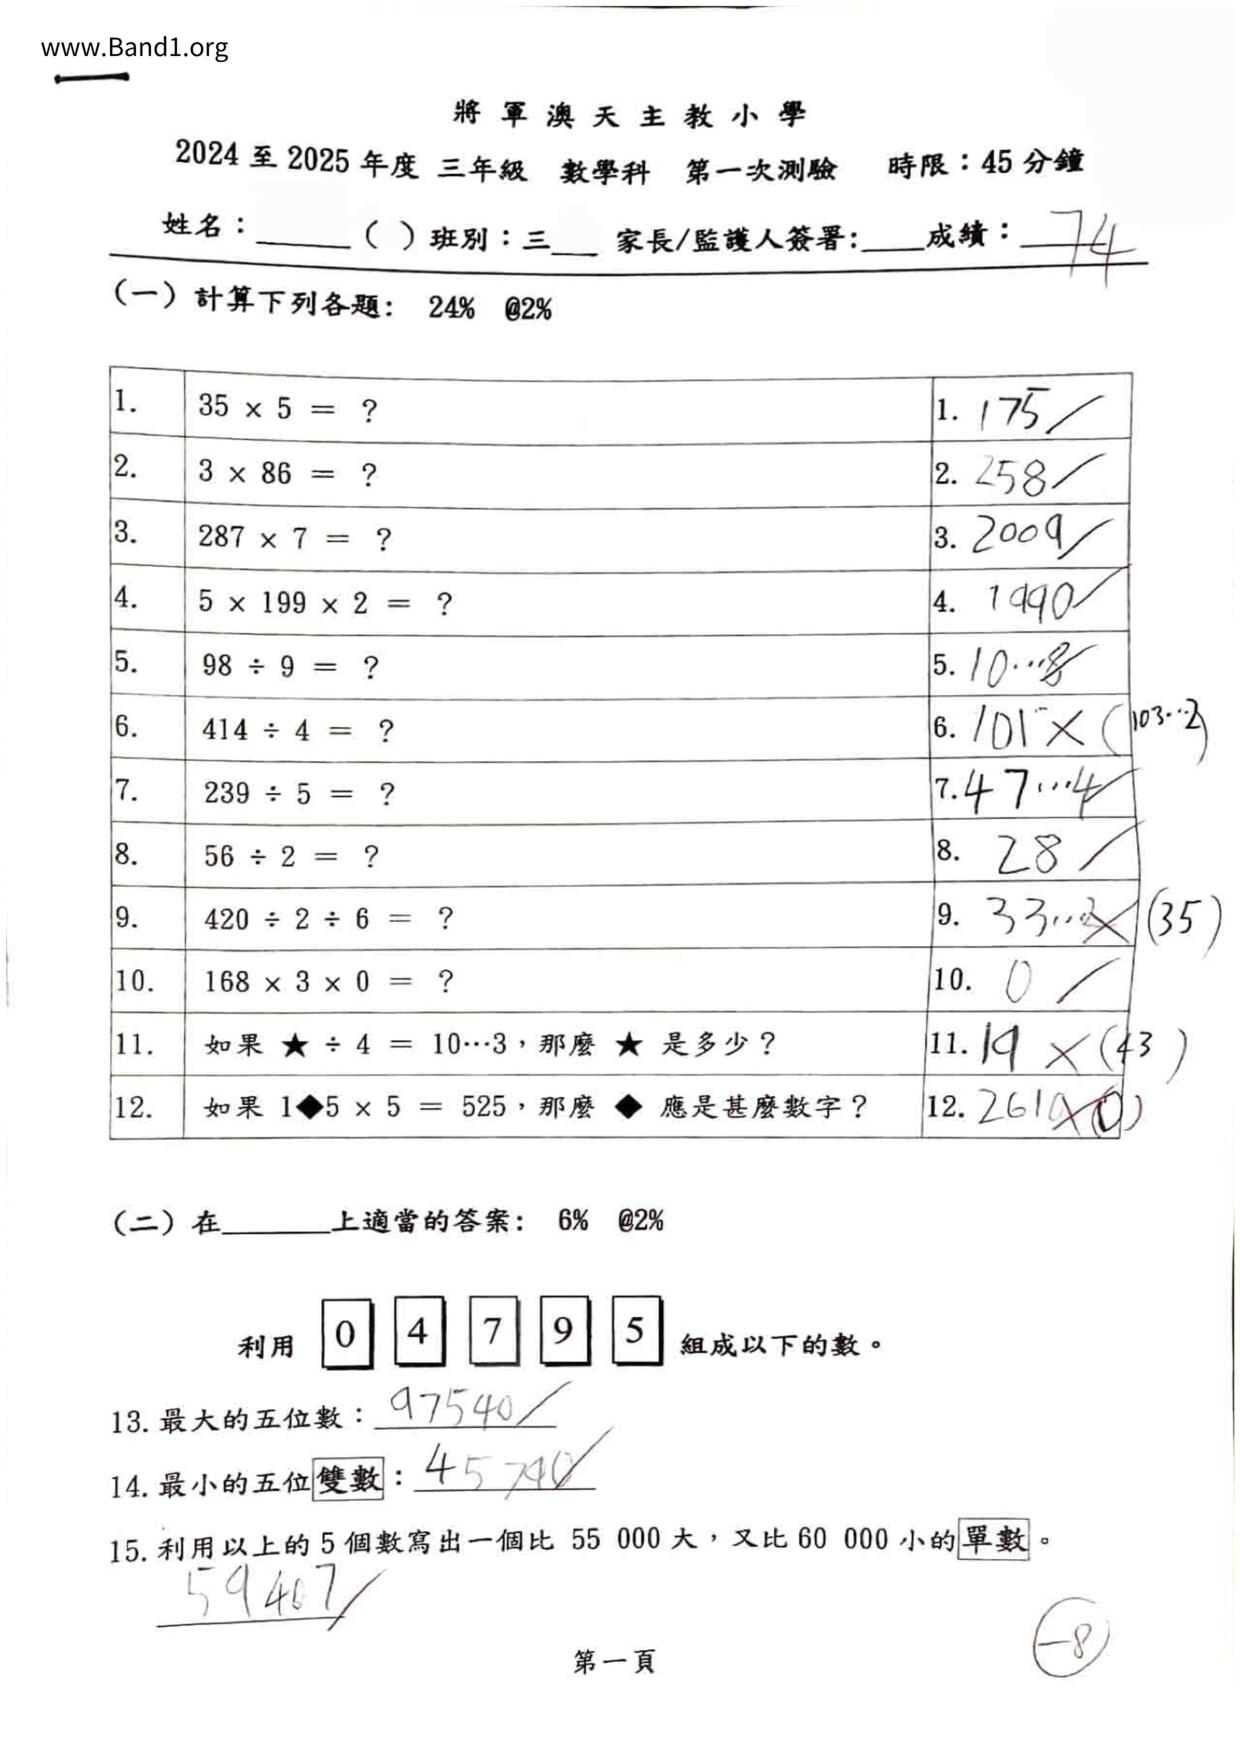 www.Band1.org
將軍澳天主教小學
2024 至 2025 年度 三年級 數學科 第一次測驗 時限：45 分鐘
姓名：______（ ）班別：三___ 家長/監護人簽署:____成績：74
（一）計算下列各題: 24% @2%
1. 35 × 5 = ? 1. 175
2. 3 × 86 = ? 2. 258
3. 287 × 7 = ? 3. 2009
4. 5 × 199 × 2 = ? 4. 1990
5. 98 ÷ 9 = ? 5. 10…8
6. 414 ÷ 4 = ? 6. 101 (103…2)
7. 239 ÷ 5 = ? 7. 47…4
8. 56 ÷ 2 = ? 8. 28
9. 420 ÷ 2 ÷ 6 = ? 9. 33… (35)
10. 168 × 3 × 0 = ? 10. 0
11. 如果 ★ ÷ 4 = 10…3，那麼 ★ 是多少？ 11. 19 (43)
12. 如果 1◆5 × 5 = 525，那麼 ◆ 應是甚麼數字？ 12. 2610 (0)
（二）在______上適當的答案: 6% @2%
利用 0 4 7 9 5 組成以下的數。
13. 最大的五位數：97540
14. 最小的五位雙數：45790
15. 利用以上的 5 個數寫出一個比 55 000 大，又比 60 000 小的單數。
59407
第一頁
-8